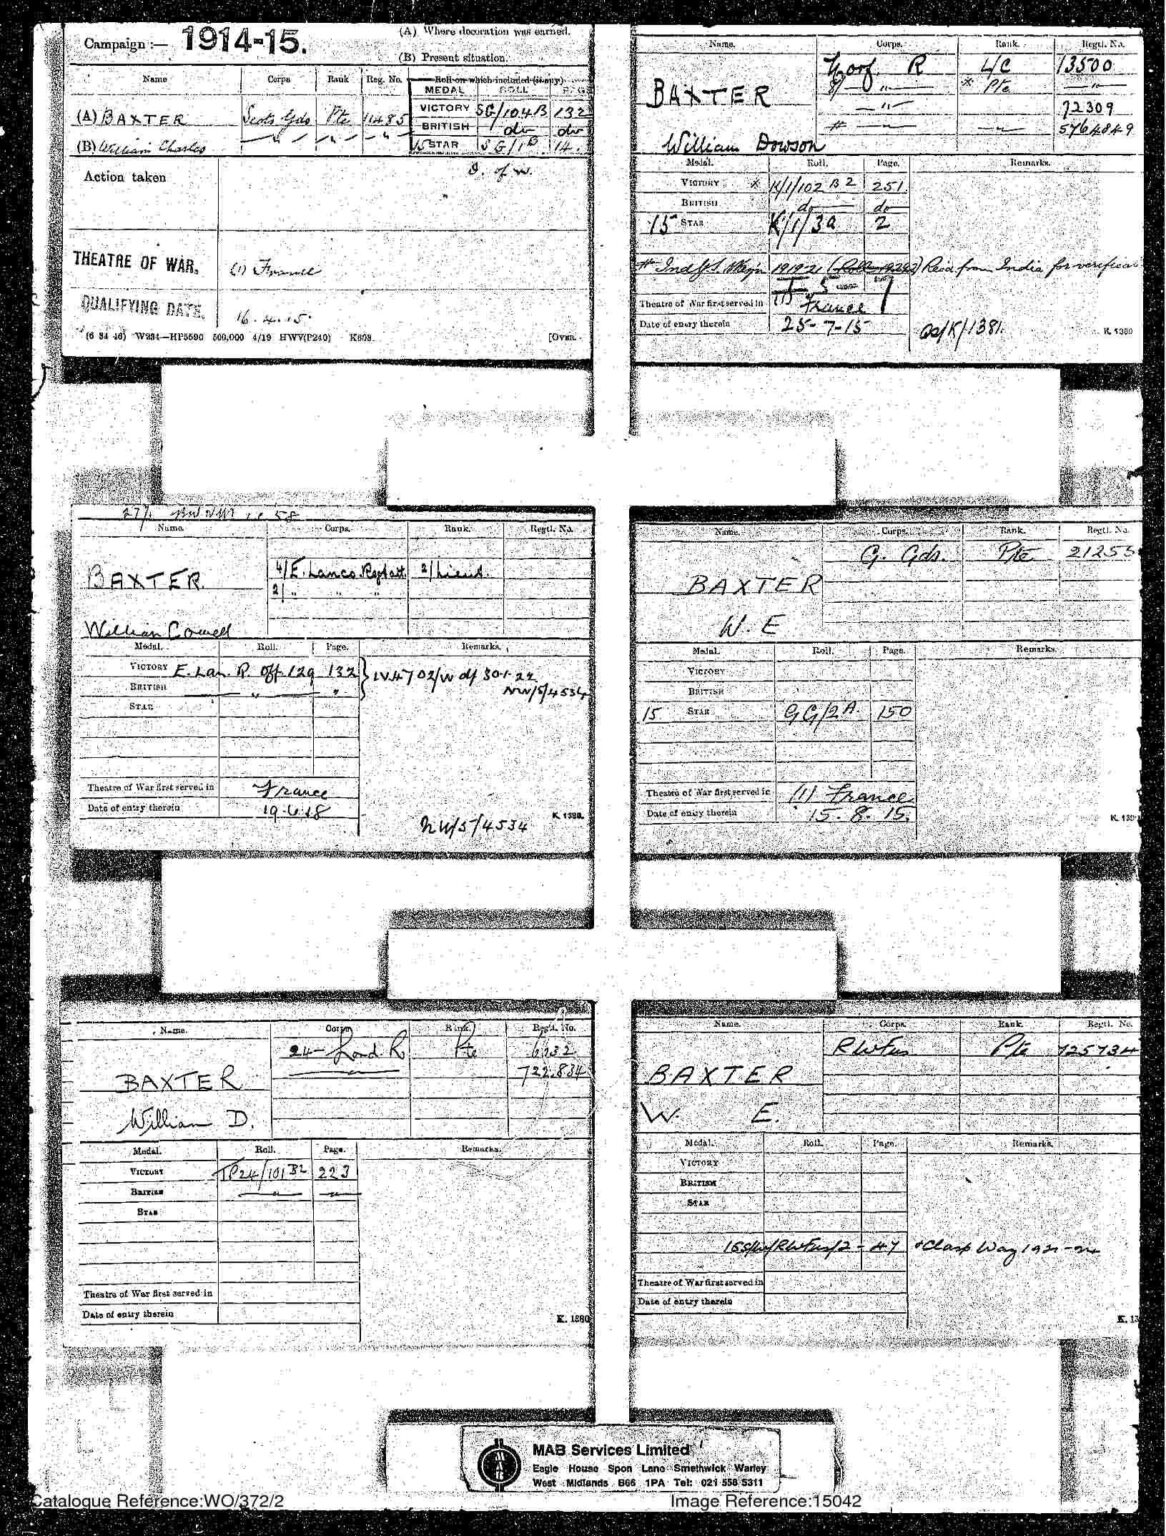 Campaign :— 1914-15.
(A) Where decoration was earned.
(B) Present situation.
Name Corps Rank Reg. No. Roll on which included (if any)
MEDAL ROLL PAGE
(A) BAXTER Scots Gds Pte 11485
VICTORY SG/104B 132
BRITISH do do
(B) William Charles " " "
15 STAR SG/1B 14
Action taken
D. of W.
THEATRE OF WAR. (1) France
QUALIFYING DATE. 16.4.15.
(6 34 46) W234—HP5590 500,000 4/19 HWV(P240) K608. [Over.
Name. Corps. Rank. Regtl. No.
BAXTER
York R L/C 13500
8/ " * Pte "
" 72309
# " " 5764849
William Dowson
Medal. Roll. Page. Remarks.
VICTORY * K/1/102 B2 251
BRITISH do do
15 STAR K/1/3A 2
1919-21
Recd from India for verification
Theatre of War first served in (1) France
Date of entry therein 25-7-15
K. 1380
Name. Corps. Rank. Regtl. No.
BAXTER
4/E. Lancs. R 2/Lieut.
2/ " " "
William Cowell
Medal. Roll. Page. Remarks.
VICTORY E. Lan. R. Off 129 132
BRITISH " "
IV4702/W df 30.1.22
NW/5/4534
STAR
Theatre of War first served in France
Date of entry therein 19.6.18
NW/5/4534
K. 1380.
Name. Corps. Rank. Regtl. No.
G. Gds. Pte 21253
BAXTER
W. E
Medal. Roll. Page. Remarks.
VICTORY
BRITISH
15 STAR GG/2A. 150
Theatre of War first served in (1) France
Date of entry therein 15. 8. 15.
Name. Corps. Rank. Regtl. No.
24- Lond R Pte 6732
" 722834
BAXTER
William D.
Medal. Roll. Page. Remarks.
VICTORY TP24/101 B2 223
BRITISH " "
STAR
Theatre of War first served in
Date of entry therein
K. 1380
Name. Corps. Rank. Regtl. No.
R W Fus Pte 725734
BAXTER
W. E.
Medal. Roll. Page. Remarks.
VICTORY
BRITISH
STAR
47 Clasp Waz 1921-24
Theatre of War first served in
Date of entry therein
MAB Services Limited
Eagle House Spon Lane Smethwick Warley
West Midlands B66 1PA Tel: 021 558 5311
Catalogue Reference:WO/372/2 Image Reference:15042